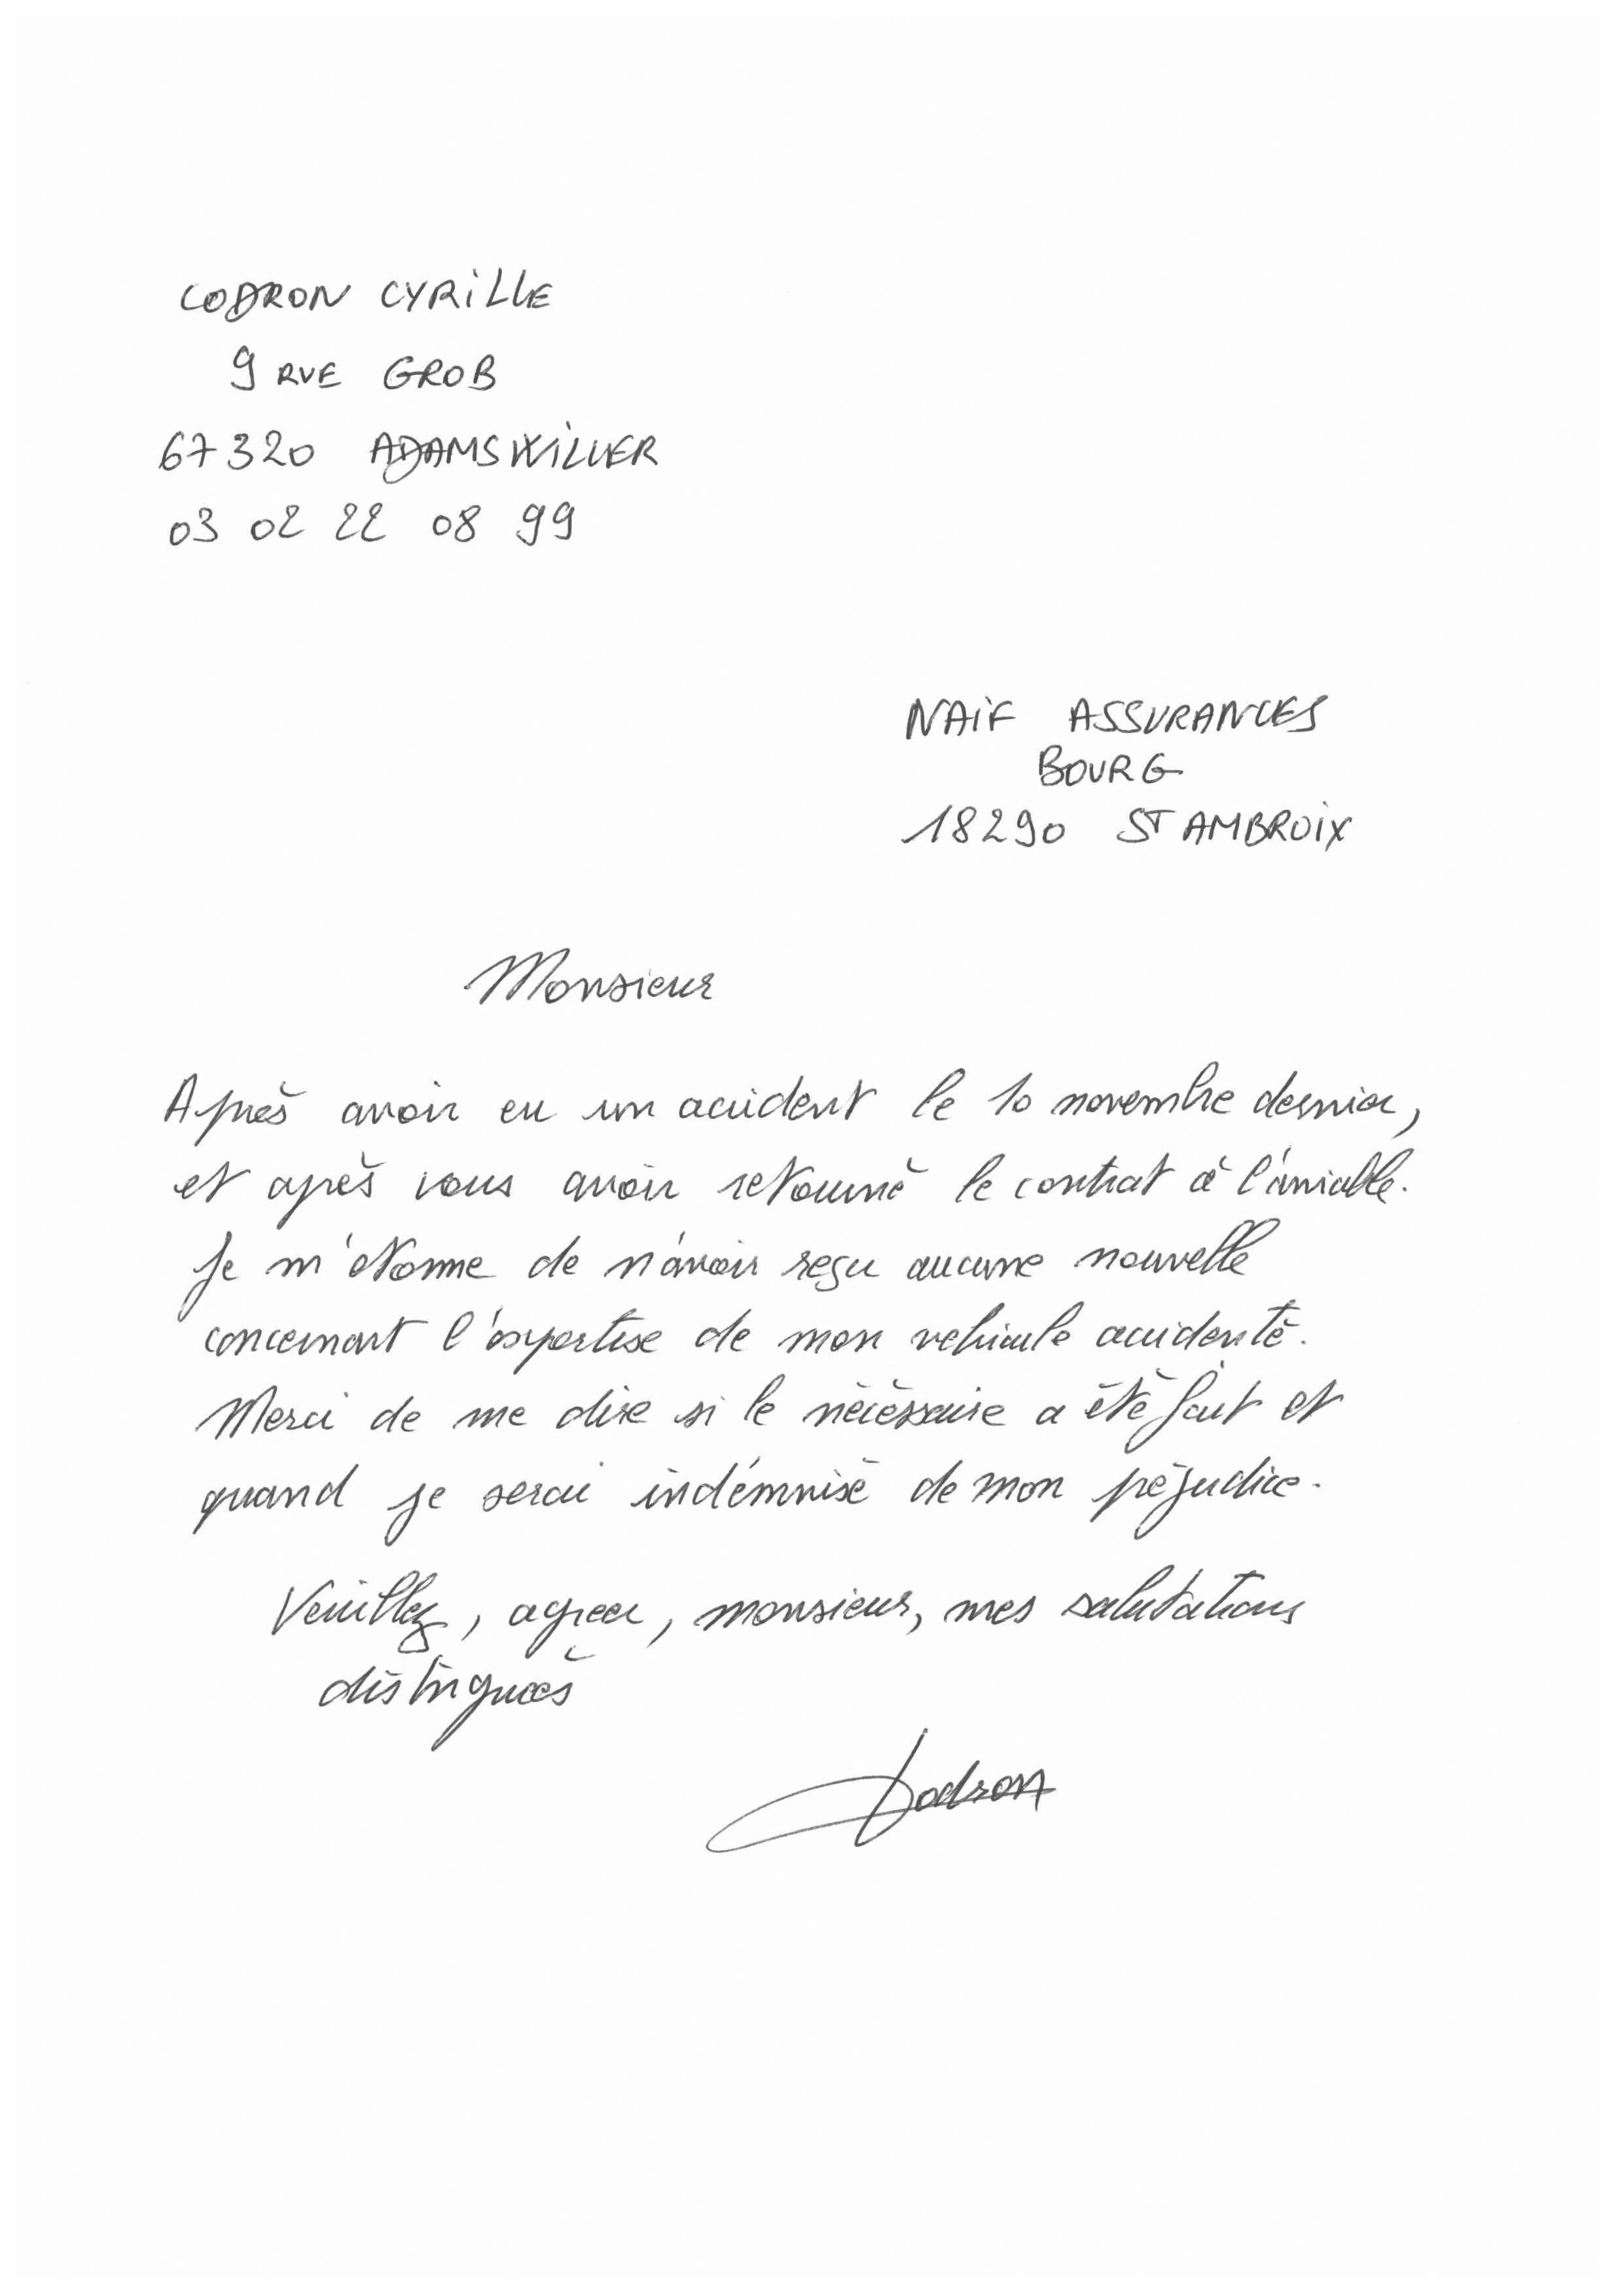 CODRON CYRILLE
9 RUE GROB
67320 ADAMSWILLER
03 02 22 08 99
NAIF ASSURANCES
BOURG
18290 ST AMBROIX
Monsieur
Après avoir eu un accident le 10 novembre dernier,
et après vous avoir retourné le contrat à l'amiable.
Je m'étonne de n'avoir reçu aucune nouvelle
concernant l'expertise de mon vehicule accidenté.
Merci de me dire si le nécéssaire a été fait et
quand je serai indémnisé de mon préjudice.
Veuillez, agreer, monsieur, mes salutations
distinguées
Codron